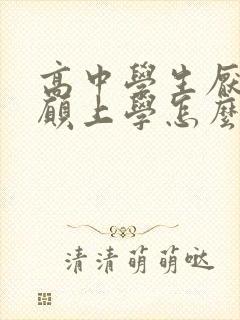 高中學生厭
願上學怎麼
清清萌萌噠